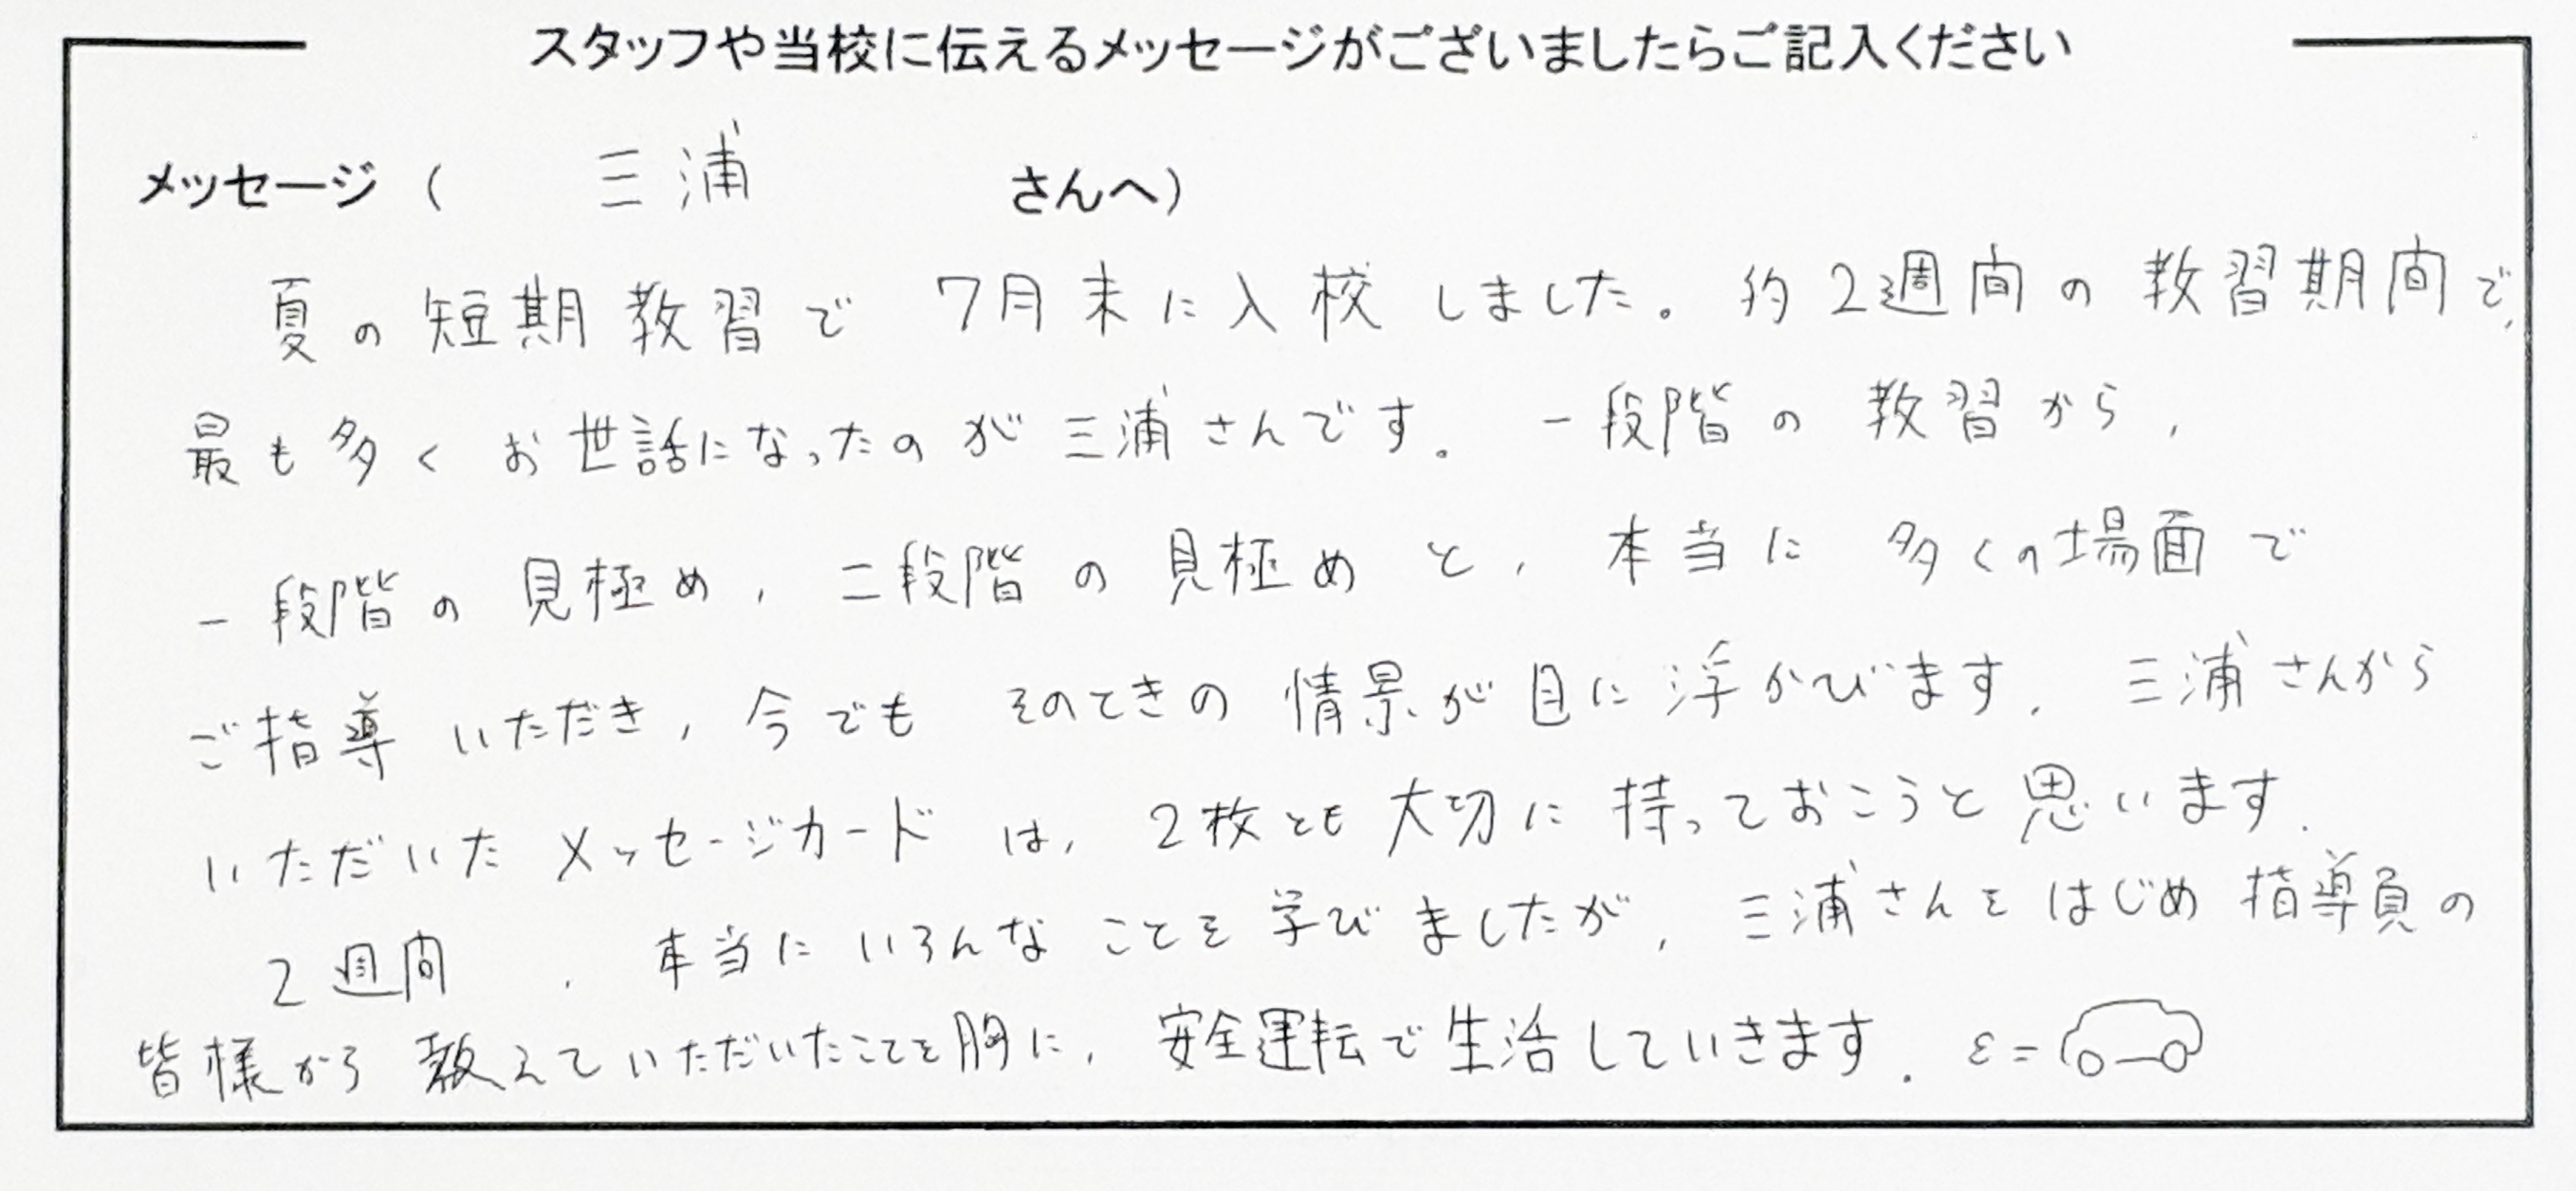 スタッフや当校に伝えるメッセージがございましたらご記入ください
メッセージ（ 三浦 さんへ）
夏の短期教習で 7月末に入校しました。約2週間の教習期間で、
最も多くお世話になったのが三浦さんです。一段階の教習から、
一段階の見極め、二段階の見極めと、本当に多くの場面で
ご指導いただき、今でもそのときの情景が目に浮かびます。三浦さんから
いただいたメッセージカードは、2枚とも大切に持っておこうと思います。
2週間、本当にいろんなことを学びましたが、三浦さんをはじめ指導員の
皆様から教えていただいたことを胸に、安全運転で生活していきます。ε=